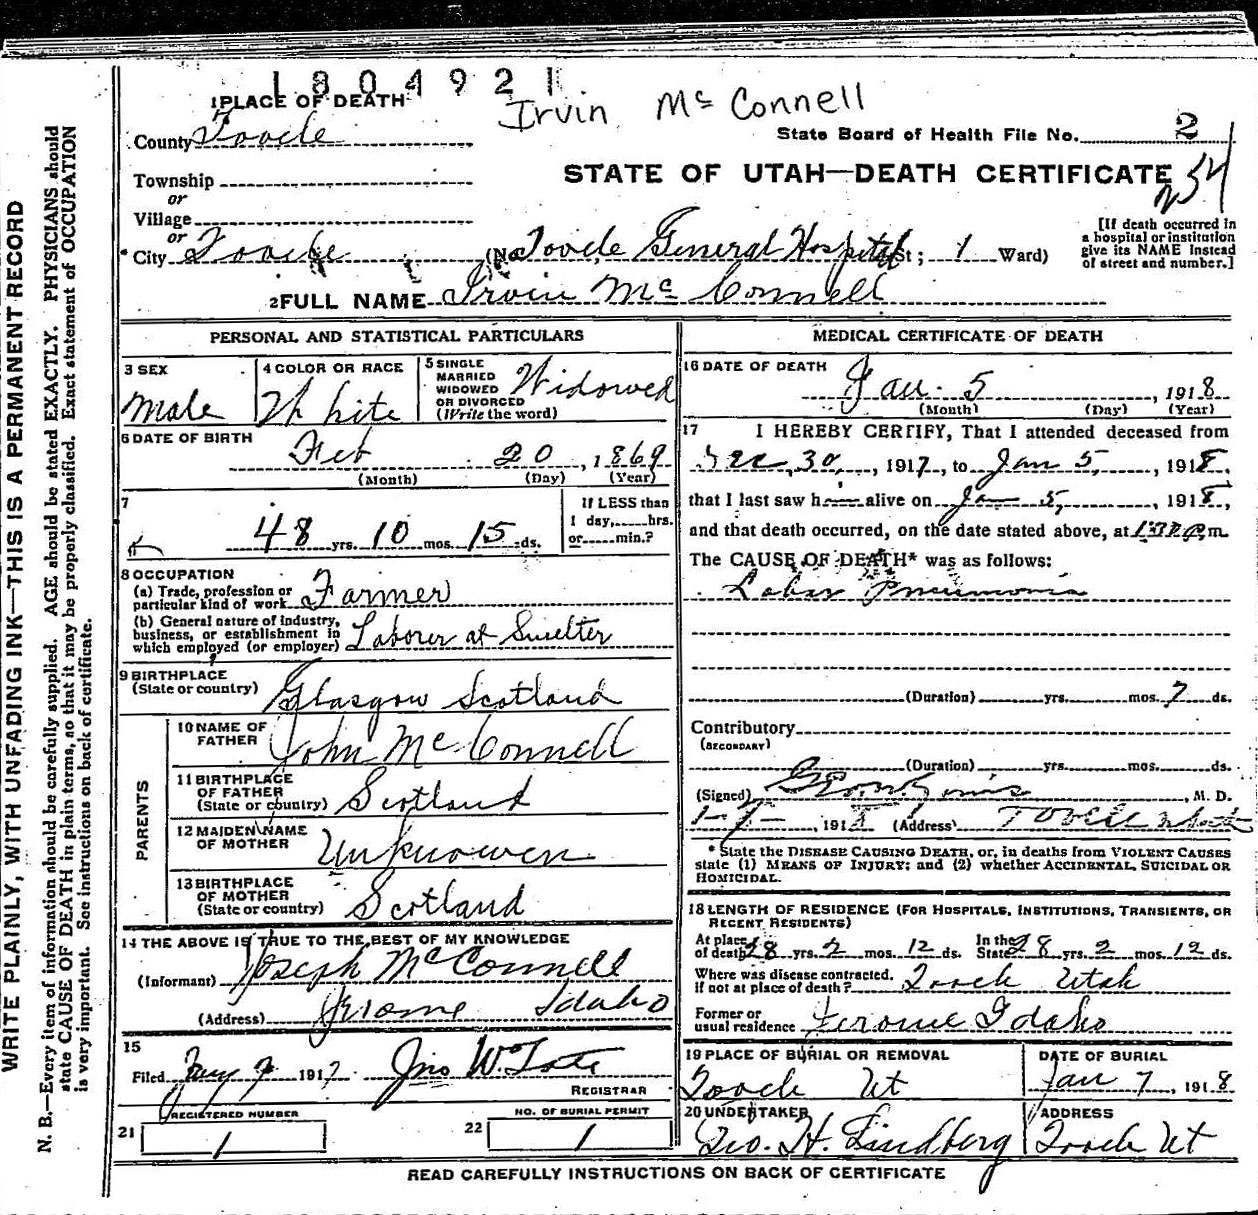 1804921
Irvin McConnell
1 PLACE OF DEATH
County Tooele
State Board of Health File No. 2
Township
or
Village
or
STATE OF UTAH—DEATH CERTIFICATE
254
City Tooele (No. Tooele General Hospital St; 1 Ward)
[If death occurred in
a hospital or institution
give its NAME instead
of street and number.]
2 FULL NAME Irvin McConnell
PERSONAL AND STATISTICAL PARTICULARS
3 SEX
Male
4 COLOR OR RACE
White
5 SINGLE
MARRIED
WIDOWED
OR DIVORCED
(Write the word)
Widowed
6 DATE OF BIRTH
Feb 20, 1869
(Month) (Day) (Year)
7
48 yrs. 10 mos. 15 ds.
If LESS than
1 day, hrs.
or min.?
8 OCCUPATION
(a) Trade, profession or
particular kind of work Farmer
(b) General nature of industry,
business, or establishment in
which employed (or employer) Laborer at Smelter
9 BIRTHPLACE
(State or country) Glasgow Scotland
PARENTS
10 NAME OF
FATHER John McConnell
11 BIRTHPLACE
OF FATHER
(State or country) Scotland
12 MAIDEN NAME
OF MOTHER Unknowen
13 BIRTHPLACE
OF MOTHER
(State or country) Scotland
14 THE ABOVE IS TRUE TO THE BEST OF MY KNOWLEDGE
(Informant) Joseph McConnell
(Address) Jerome Idaho
15
Filed Jany 7 1917 Jno W. Tate
REGISTRAR
REGISTERED NUMBER
21 1
NO. OF BURIAL PERMIT
22 1
MEDICAL CERTIFICATE OF DEATH
16 DATE OF DEATH
Jan. 5, 1918
(Month) (Day) (Year)
17 I HEREBY CERTIFY, That I attended deceased from
Dec 30, 1917, to Jan 5, 1918,
that I last saw h alive on Jan 5, 1918,
and that death occurred, on the date stated above, at m.
The CAUSE OF DEATH* was as follows:
Lobar Pneumonia
(Duration) yrs. mos. 7 ds.
Contributory
(SECONDARY)
(Duration) yrs. mos. ds.
(Signed) , M. D.
1-7-, 1918 (Address) Tooele Utah
* State the DISEASE CAUSING DEATH, or, in deaths from VIOLENT CAUSES
state (1) MEANS OF INJURY; and (2) whether ACCIDENTAL, SUICIDAL OR
HOMICIDAL.
18 LENGTH OF RESIDENCE (FOR HOSPITALS, INSTITUTIONS, TRANSIENTS, OR
RECENT RESIDENTS)
At place
of death 28 yrs. 2 mos. 12 ds.
In the
State 28 yrs. 2 mos. 12 ds.
Where was disease contracted.
if not at place of death? Tooele Utah
Former or
usual residence Jerome Idaho
19 PLACE OF BURIAL OR REMOVAL
Tooele Ut
DATE OF BURIAL
Jan 7, 1918
20 UNDERTAKER
Geo. H. Lindberg
ADDRESS
Tooele Ut
READ CAREFULLY INSTRUCTIONS ON BACK OF CERTIFICATE
WRITE PLAINLY, WITH UNFADING INK—THIS IS A PERMANENT RECORD
N. B.—Every item of information should be carefully supplied. AGE should be stated EXACTLY. PHYSICIANS should
state CAUSE OF DEATH in plain terms, so that it may be properly classified. Exact statement of OCCUPATION
is very important. See instructions on back of certificate.